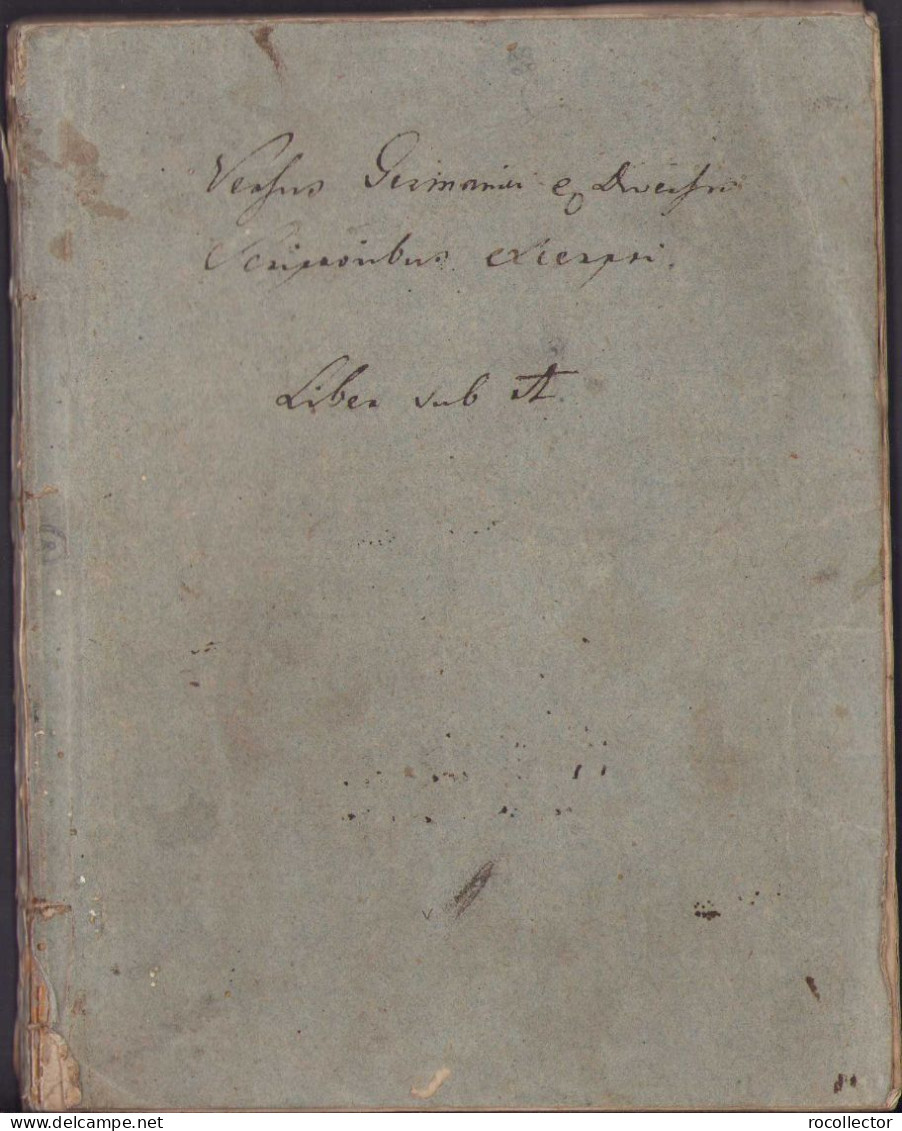 Versus Germanici ex Diversis
Scriptoribus excerpti.
Liber sub A.
delcampe.net
rocollector